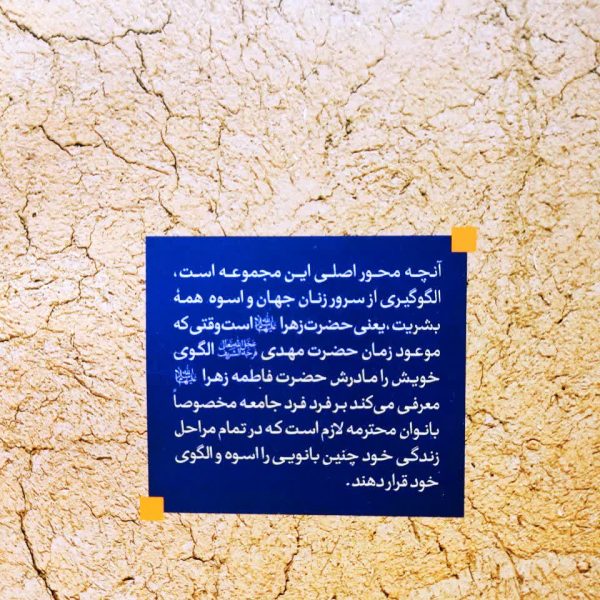 آنچه محور اصلی این مجموعه است،
الگوگیری از سرور زنان جهان و اسوه همهٔ
بشریت، یعنی حضرت زهرا است وقتی که
موعود زمان حضرت مهدی الگوی
خویش را مادرش حضرت فاطمه زهرا
معرفی می‌کند بر فرد فرد جامعه مخصوصاً
بانوان محترمه لازم است که در تمام مراحل
زندگی خود چنین بانویی را اسوه و الگوی
خود قرار دهند.